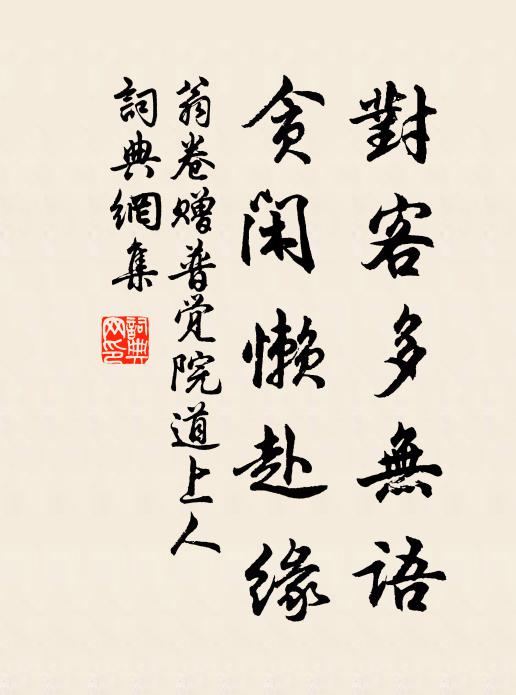 對客多無語
貪閑懶赴緣
翁卷赠普觉院道上人
詞典網集
詞典网印